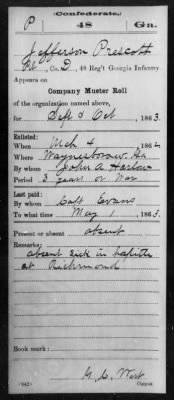 (Confederate.)
P 48 Ga.
Jefferson Prescott
Co. D, 48 Reg't Georgia Infantry.
Appears on
Company Muster Roll
of the organization named above,
for Sept & Oct, 1863.
Enlisted:
When Mch 4, 1862
Where Waynesboro, Ga
By whom John A Harlow
Period 3 years or War
Last paid:
By whom Capt Evans
To what time May 1, 1863.
Present or absent absent
Remarks:
absent sick in
at Richmond
Book mark:
(642)
Copyist.